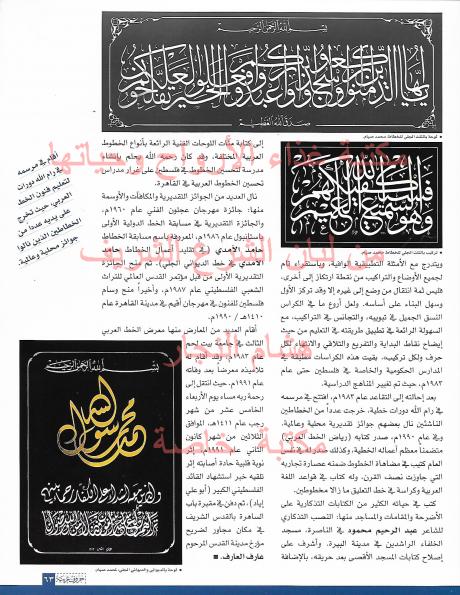 بسم الله الرحمن الرحيم
صدق الله العظيم
لوحة بالثلث الجلي للخطاط محمد صيام
تركيب بالثلث الجلي للخطاط محمد صيام
ويتدرج مع الأمثلة التطبيقية الوافية، وباستقراء تام
لجميع الأوضاع والتراكيب من نقطة ارتكاز إلى أخرى،
فليس ثمة انتقال من وضع إلى غيره إلا وقد تركز الأول
وسهل البناء على أساسه. ولعل أروع ما في الكراس
النسق الجميل في تبويبه، والتجانس في التراكيب، مع
السهولة الرائعة في تطبيق طريقته في التعليم من حيث
إيضاح نقاط البداية والتفريع والتلاقي والانتهاء لكل
حرف ولكل تركيب. بقيت هذه الكراسات مطبقة في
المدارس الحكومية والخاصة في فلسطين حتى عام
١٩٨٣م، حيث تم تغيير المناهج الدراسية.
بعد إحالته إلى التقاعد عام ١٩٨٣م، افتتح في مرسمه
في رام الله دورات خطية، خرجت عددا من الخطاطين
الناشئين نال بعضهم جوائز تقديرية محلية وعالمية.
وفي عام ١٩٩٠م، صدر كتابه (رياض الخط العربي)
متضمنا معظم أعماله الخطية، وكذلك صدر له في نفس
العام كتيب في مضاهاة الخطوط ضمنه عصارة تجاربه
التي جاوزت نصف القرن، وله كتاب في قواعد اللغة
العربية وكراسة في خط التعليق ما زالا مخطوطين.
كتب في حياته الكثير من الكتابات التذكارية على
الأضرحة والمقامات والمساجد منها: النصب التذكاري
للشاعر عبد الرحيم محمود في الناصرة، مسجد
الخلفاء الراشدين في مدينة البيرة، وأشرف على
إصلاح كتابات المسجد الأقصى بعد حريقه، بالإضافة
إلى كتابة مئات اللوحات الفنية الرائعة بأنواع الخطوط
العربية المختلفة، وقد كان رحمه الله يحلم بإنشاء
مدرسة لتحسين الخطوط في فلسطين على غرار مدراس
تحسين الخطوط العربية في القاهرة.
نال العديد من الجوائز التقديرية والمكافآت والأوسمة
منها: جائزة مهرجان عجلون الفني عام ١٩٦٠م،
والجائزة التقديرية في مسابقة الخط الدولية الأولى
بإستانبول عام ١٩٨٦م، المعروفة باسم مسابقة الخطاط
حامد الآمدي في تقليد أعمال الخطاط حامد
الآمدي في خط الديواني الجلي. تم منح الجائزة
التقديرية الأولى من قبل مؤتمر القدس العالمي للتراث
الشعبي الفلسطيني عام ١٩٨٧م، وأخيراً منح وسام
فلسطين للفنون في مهرجان أقيم في مدينة القاهرة عام
١٤١٠هـ / ١٩٩٠م.
أقام العديد من المعارض منها معرض الخط العربي
الثالث في جامعة بيت لحم
عام ١٩٨٣م، وقد أقام له
تلاميذه معرضاً بعد وفاته
عام ١٩٩١م، حيث انتقل إلى
رحمة ربه مساء يوم الأربعاء
الخامس عشر من شهر
رجب عام ١٤١١هـ، الموافق
الثلاثين من شهر كانون
ثاني عام ١٩٩١م، إثر
نوبة قلبية حادة أصابته إثر
تلقيه خبر استشهاد القائد
الفلسطيني الكبير (أبو علي
إياد)، تم دفن في مقبرة باب
الساهرة بالقدس الشريف
في مكان مجاور لضريح
مؤرخ مدينة القدس المرحوم
عارف العارف.
أقام في مرسمه
في رام الله دورات
لتعليم فنون الخط
العربي، حيث تخرج
على يديه عددا من
الخطاطين الذين نالوا
جوائز محلية وعالمية.
بسم الله الرحمن الرحيم
محمد رسول الله
والذين معه أشداء على الكفار رحماء بينهم
لوحة بالديواني والديواني الجلي لمحمد صيام
مكتبة
لبنان
مكتبة خاصة
حروف عربية
٦٣